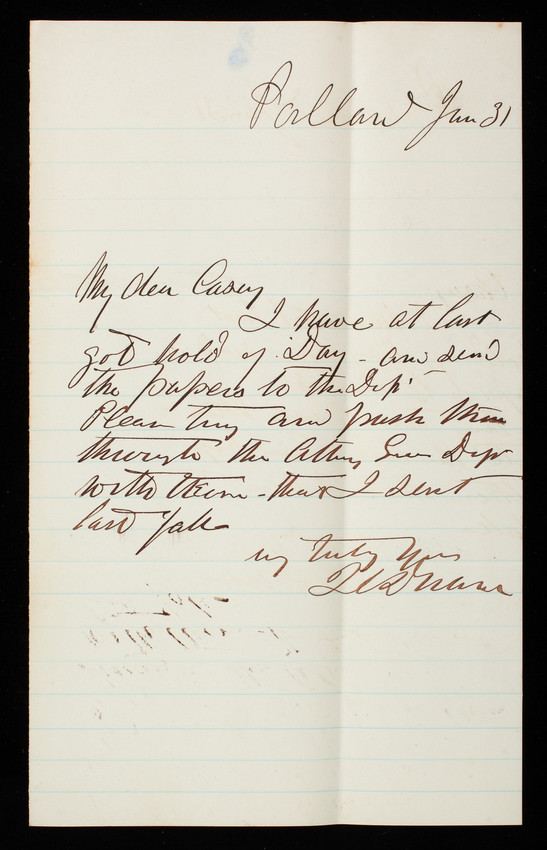 Portland Jan 31
My dear Casey
I have at last
got hold of Day - and send
the papers to the Dept
Please try and push them
through the Attny Gens Dept
with those - that I sent
last fall
very truly Yours